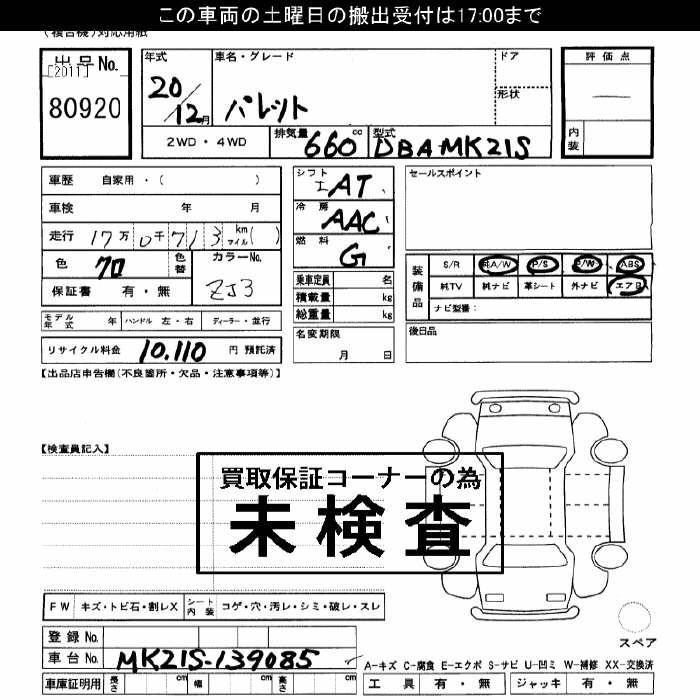 この車両の土曜日の搬出受付は17:00まで
(複合機)対応用紙
出品No.
[2011]
80920
年式 車名・グレード ドア
20/12月 パレット 形状
2WD・4WD 排気量 660cc 型式 DBA-MK21S
評価点
内装
車歴 自家用・( )
車検 年 月
走行 17万0千713km マイル( )
色 クロ 色替 カラーNo. ZJ3
保証書 有・無
モデル年式 年 ハンドル 左・右 ディーラー・並行
リサイクル料金 10,110 円 預託済
シフト AT
冷房 AAC
燃料 G
乗車定員 名
積載量 kg
総重量 kg
名変期限
月 日
セールスポイント
装備品 S/R 純A/W P/S P/W ABS
純TV 純ナビ 革シート 外ナビ エアB
ナビ型番:
後日品
【出品店申告欄(不良箇所・欠品・注意事項等)】
【検査員記入】
買取保証コーナーの為
未検査
FW キズ・トビ石・割レX シート内装 コゲ・穴・汚レ・シミ・破レ・スレ
登録No.
車台No. MK21S-139085
車庫証明用 長さ cm 幅 cm 高さ cm
スペア
A-キズ C-腐食 E-エクボ S-サビ U-凹ミ W-補修 XX-交換済
工具 有・無 ジャッキ 有・無